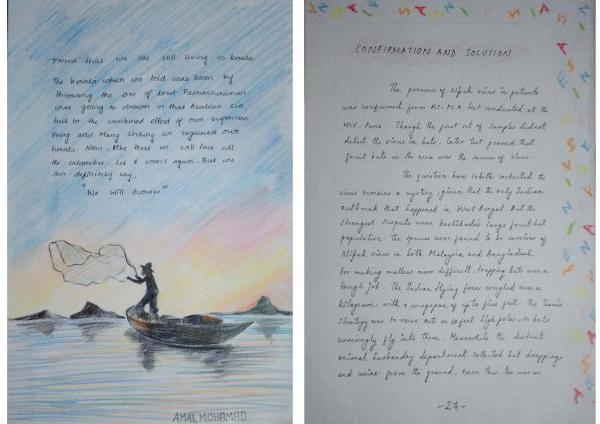 proved that we are still living in kerala.
The Kerala which we told was born by
throwing the axe of Lord Parasuraman
was going to drown in that Arabian sea
but to the combined effort of our superman
Sung and Many Unsung we regained our
Kerala Now, like these we will face all
the calamities. Let it won't again. But we
can definitely say,
"We Will Survive"
AMAL MOHAMAD
CONFIRMATION AND SOLUTION
The presence of Nipah virus in patients
was confirmed from RT-PCR test conducted at the
NIV, Pune. Though the first set of samples did not
detect the virus in bats, later test proved that
fruit bats in the area was the source of virus.
The question how sabith contracted the
virus remains a mystery, given that the only Indian
outbreak that happened in West Bengal. But the
strongest suspects were kozhikode's large fruit bat
population. The species were found to be carriers of
Nipah virus in both Malaysia and Bangladesh.
For making matters more difficult, trapping bats was a
tough job. The Indian flying foxes weighed over a
kilogram, with a wingspan of up to five feet. The team's
strategy was to raise nets on feet high poles, so bats
unwittingly fly into them. Meanwhile the district
animal husbandry department collected bat droppings
and urine from the ground, even this too was an
-27-